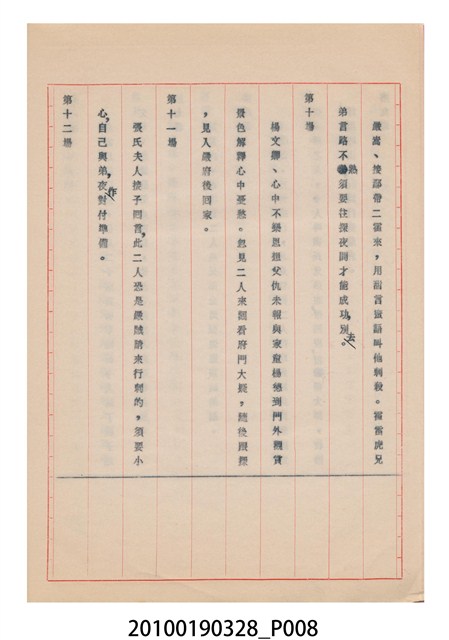 嚴嵩、接鄢帶二霍來，用甜言蜜語叫他刺殺。霍雷虎兄
弟言路不熟須要往探夜間才能成功，去。
第十場
楊文卿、心中不樂思想父仇未報與家童楊德到門外觀賞
景色解釋心中憂愁。忽見二人來洄看府門大疑，隨後跟蹤
，見入嚴府後回家。
第十一場
張氏夫人接子回言，此二人恐是嚴賊請來行刺的，須要小
心，自己與弟夜作對付準備。
第十二場
20100190328_P008